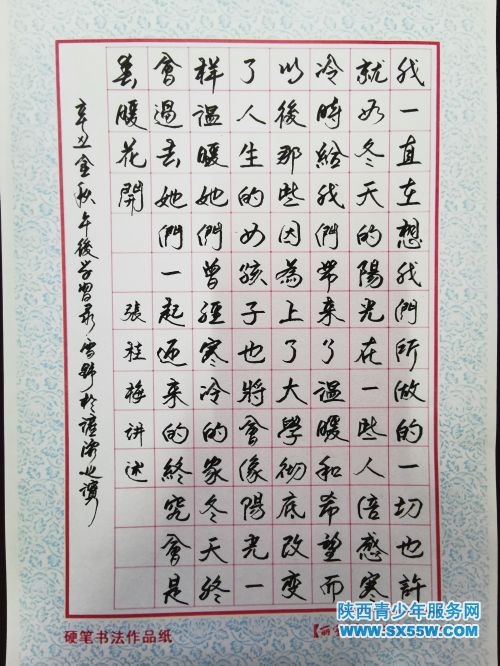 我一直在想我們所做的一切也許
就如冬天的陽光在一些人倍感寒
冷時給我們帶来了溫暖和希望而
以後那些因為上了大學徹底改變
了人生的女孩子也將會像陽光一
样溫暖她們曾經寒冷的家冬天終
會過去她們一起迎来的終究會是
春暖花開 張桂梅讲述
辛丑金秋午後
硬笔书法作品纸
陕西青少年服务网
www.sx55w.com